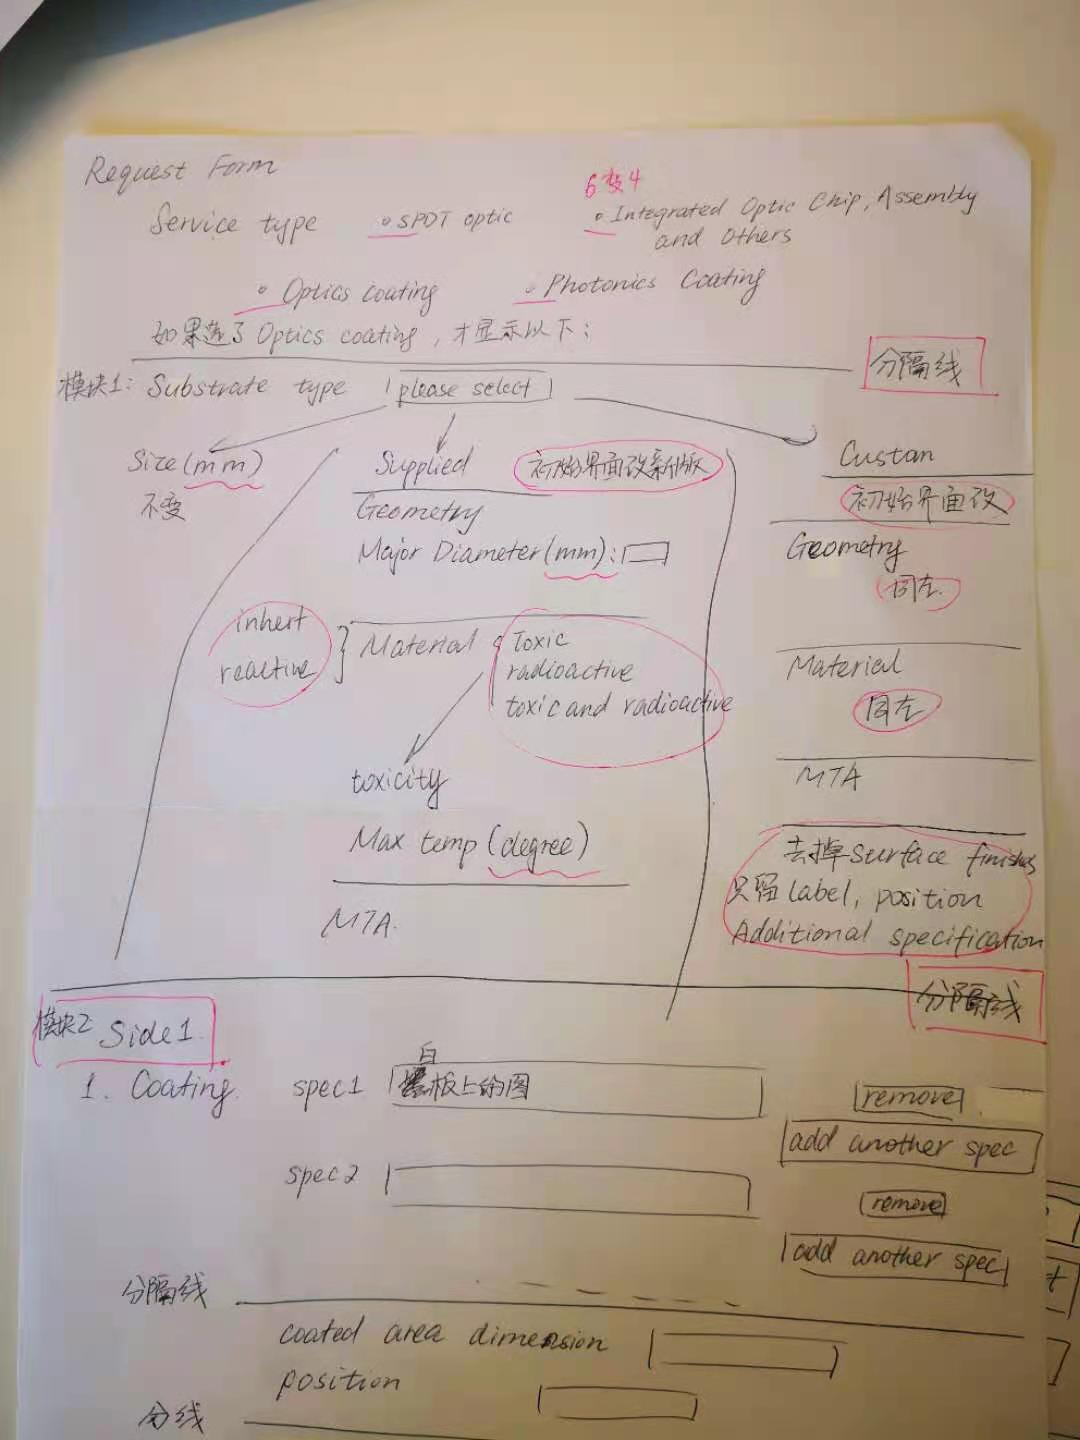 Request Form
6变4
Service type ○ SPDT optic ○ Integrated Optic Chip, Assembly
and Others
○ Optics coating ○ Photonics Coating
如果选了 Optics coating, 才显示以下:
分隔线
模块1: Substrate type please select
Size(mm)
不变
Supplied 初始界面改新版
Geometry
Major Diameter(mm):
inhert
reactive
Material
Toxic
radioactive
toxic and radioactive
toxicity
Max temp (degree)
MTA.
Custan
初始界面改
Geometry
同左.
Material
同左
MTA
去掉surface finishes
只留label, position
Additional specification
分隔线
模块2 Side1.
1. Coating. spec1 白板上的图 remove
add another spec
spec2 remove
add another spec
分隔线
coated area dimension
position
分线
t